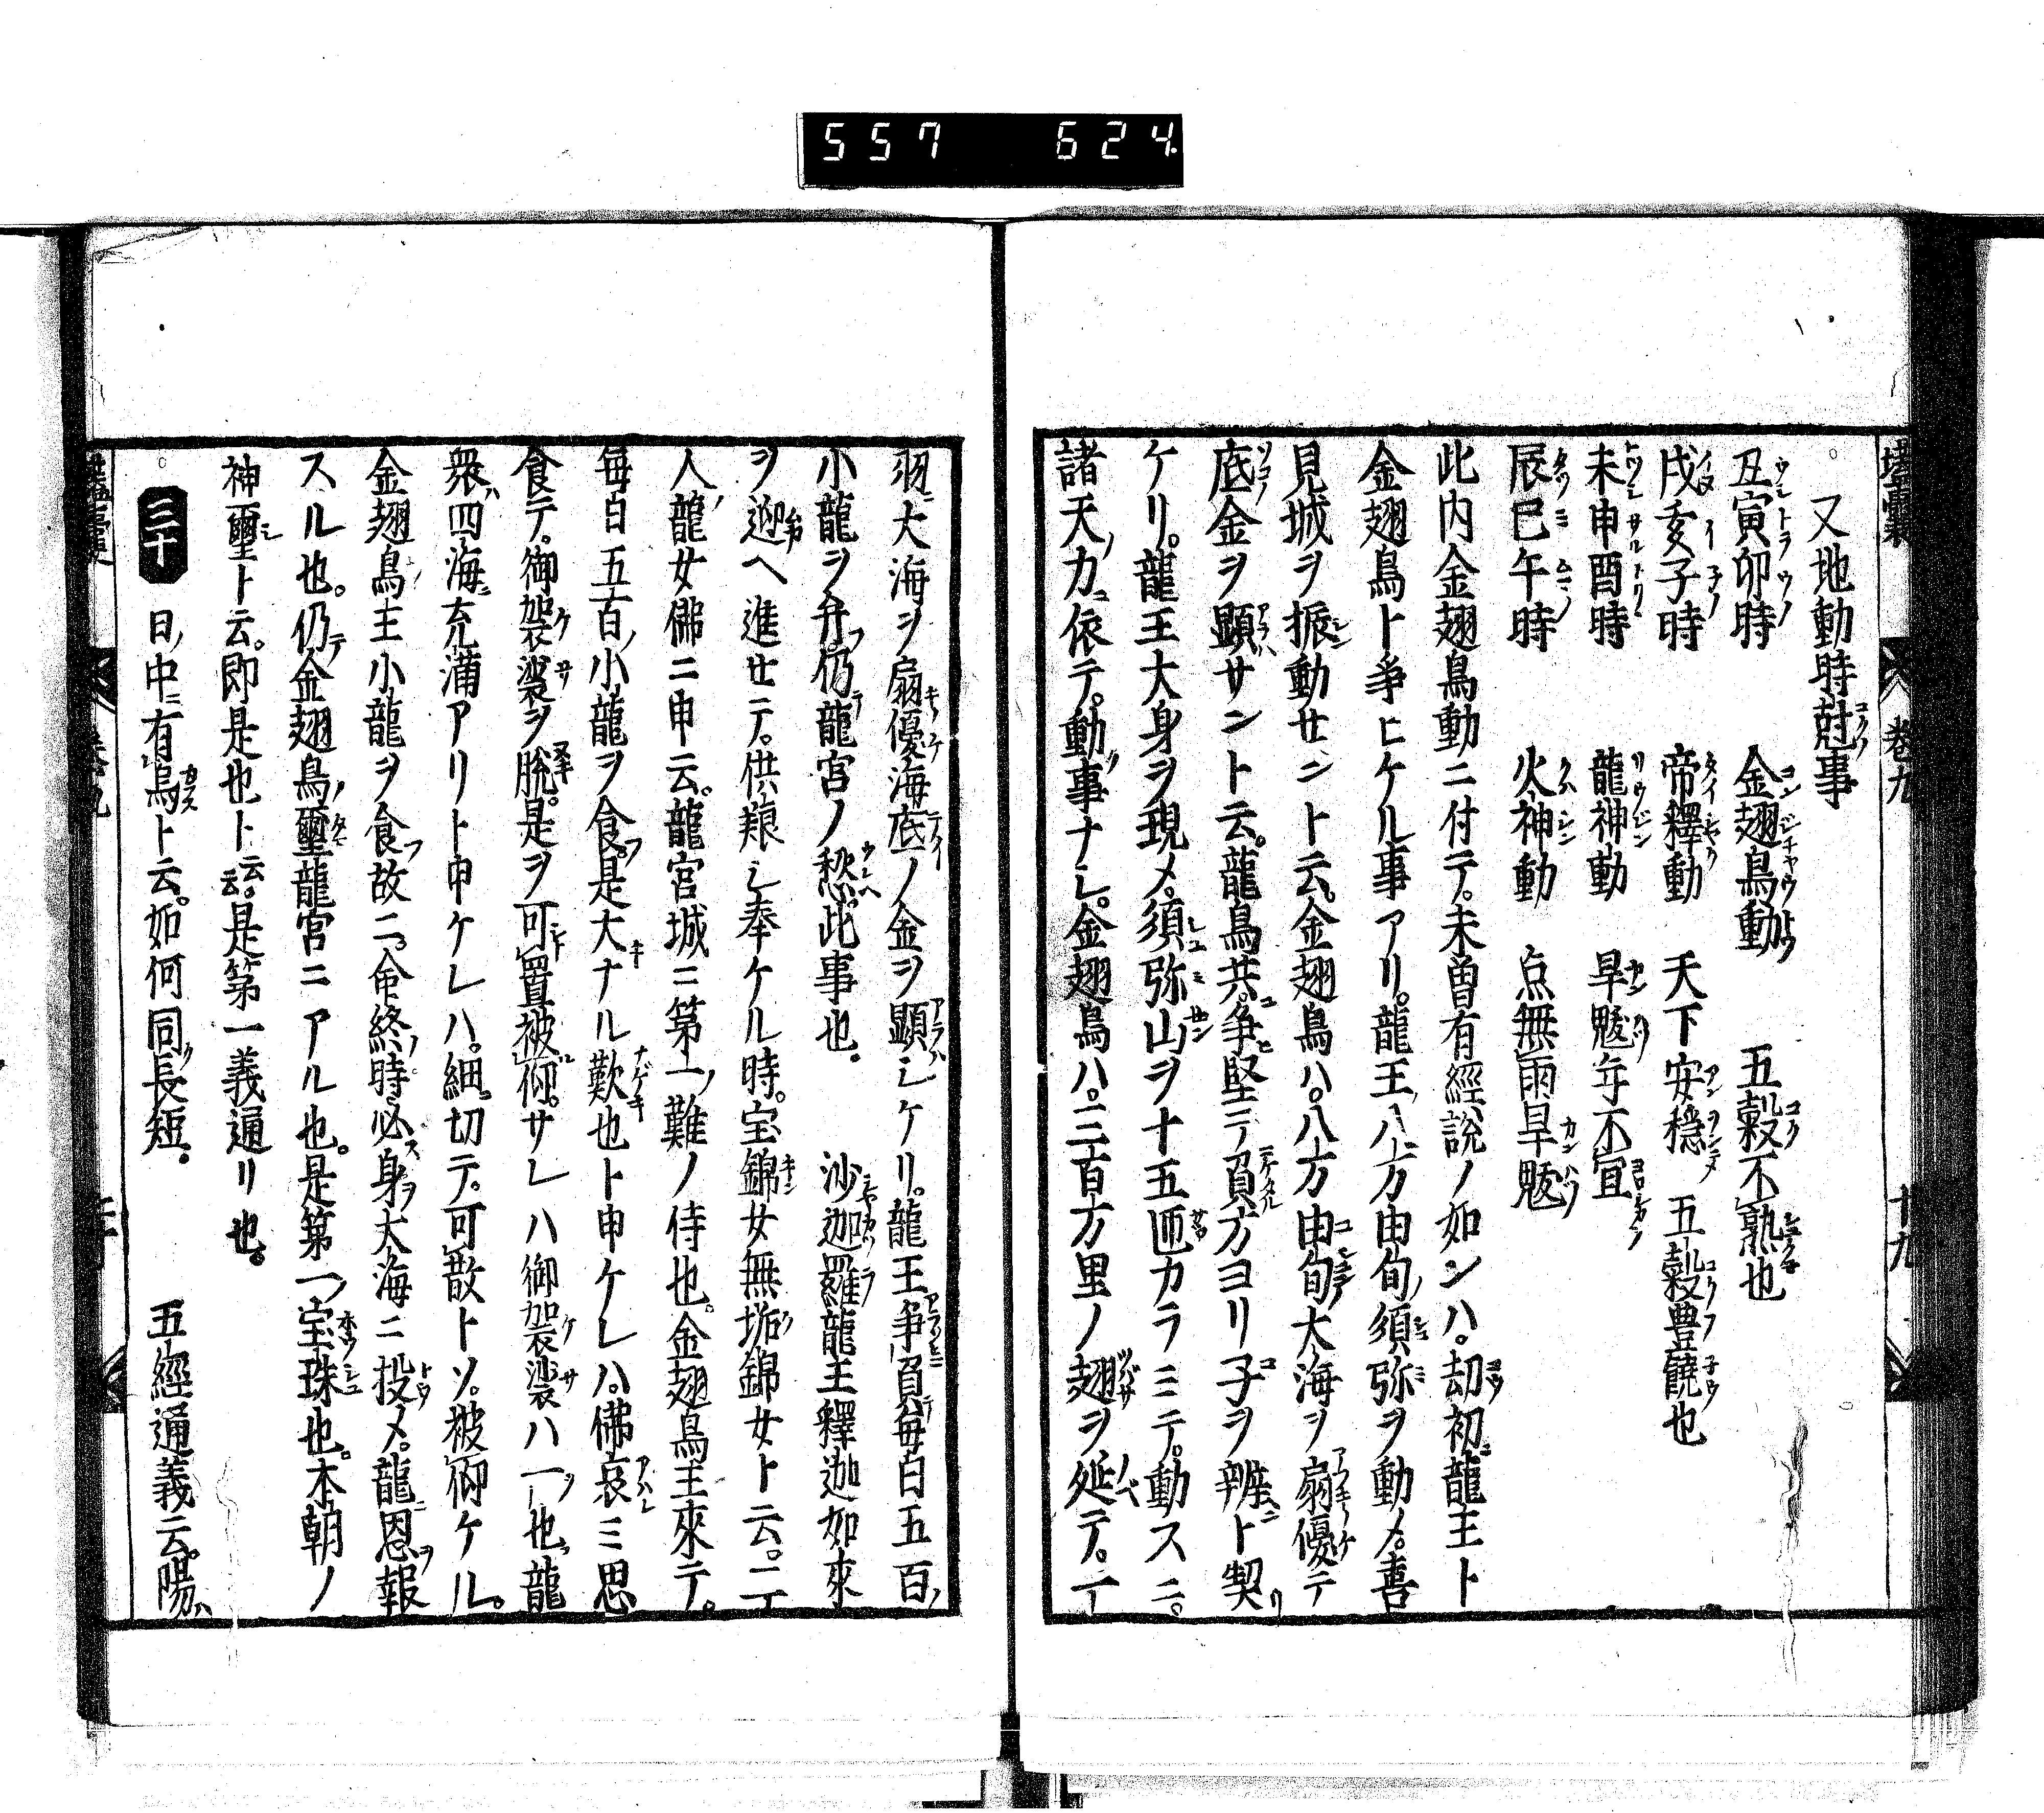 557 624
壒囊 巻九 十九
又地動時尅事
丑寅卯時 金翅鳥動 五穀不熟也
戌亥子時 帝釋動 天下安穏 五穀豊饒也
未申酉時 龍神動 旱魃年不宜
辰巳午時 火神動 点無雨旱魃
此内金翅鳥動ニ付テ。未曽有經説ノ如ンハ。劫初ニ龍王ト
金翅鳥ト争ヒケル事アリ。龍王ハ八万由旬ノ須弥ヲ動メ。喜
見城ヲ振動セントス云。金翅鳥ハ。八万由旬ノ大海ヲ扇優テ
底ノ金ヲ顕サント云。龍鳥共ニ争堅テ負方ヨリ子ヲ辨ト契リ
ケリ。龍王大身ヲ現メ。須弥山ヲ十五匝カラミテ。動スニ。
諸天ノ力ニ依テ。動事ナシ。金翅鳥ハ。三百万里ノ翅ヲ延テ。一
羽ニ大海ヲ扇優海底ノ金ヲ顕シケリ。龍王争負テ毎日五百ノ
小龍ヲ弁フ。仍テ龍宮ノ愁此事也。 沙迦羅龍王釋迦如來
ヲ迎ヘ進セテ。供粮シ奉ケル時。宝錦女無垢錦女ト云。二
人ノ龍女佛ニ申云。龍宮城ニ第一ノ難ノ侍也。金翅鳥王來テ。
毎日五百ノ小龍ヲ食フ。是大キナル歎也ト申ケレハ。佛哀ミ思
食テ。御袈裟ヲ脱。是ヲ可置被仰。サレハ御袈裟ハ一ヲ也。龍
衆ハ四海ニ充満アリト申ケレハ。細切テ。可散トソ。被仰ケル。
金翅鳥王小龍ヲ食フ故ニ。命終ノ時。必ス身ヲ大海ニ投メ。龍ニ恩ヲ報
スル也。仍テ金翅鳥ノ璽龍宮ニアル也。是第一ノ宝珠也。本朝ノ
神璽ト云。即是也ト云云。是第一義通リ也。
三十 日ノ中ニ有烏ト云。如何同ク長短。 五經通義云。陽ハ